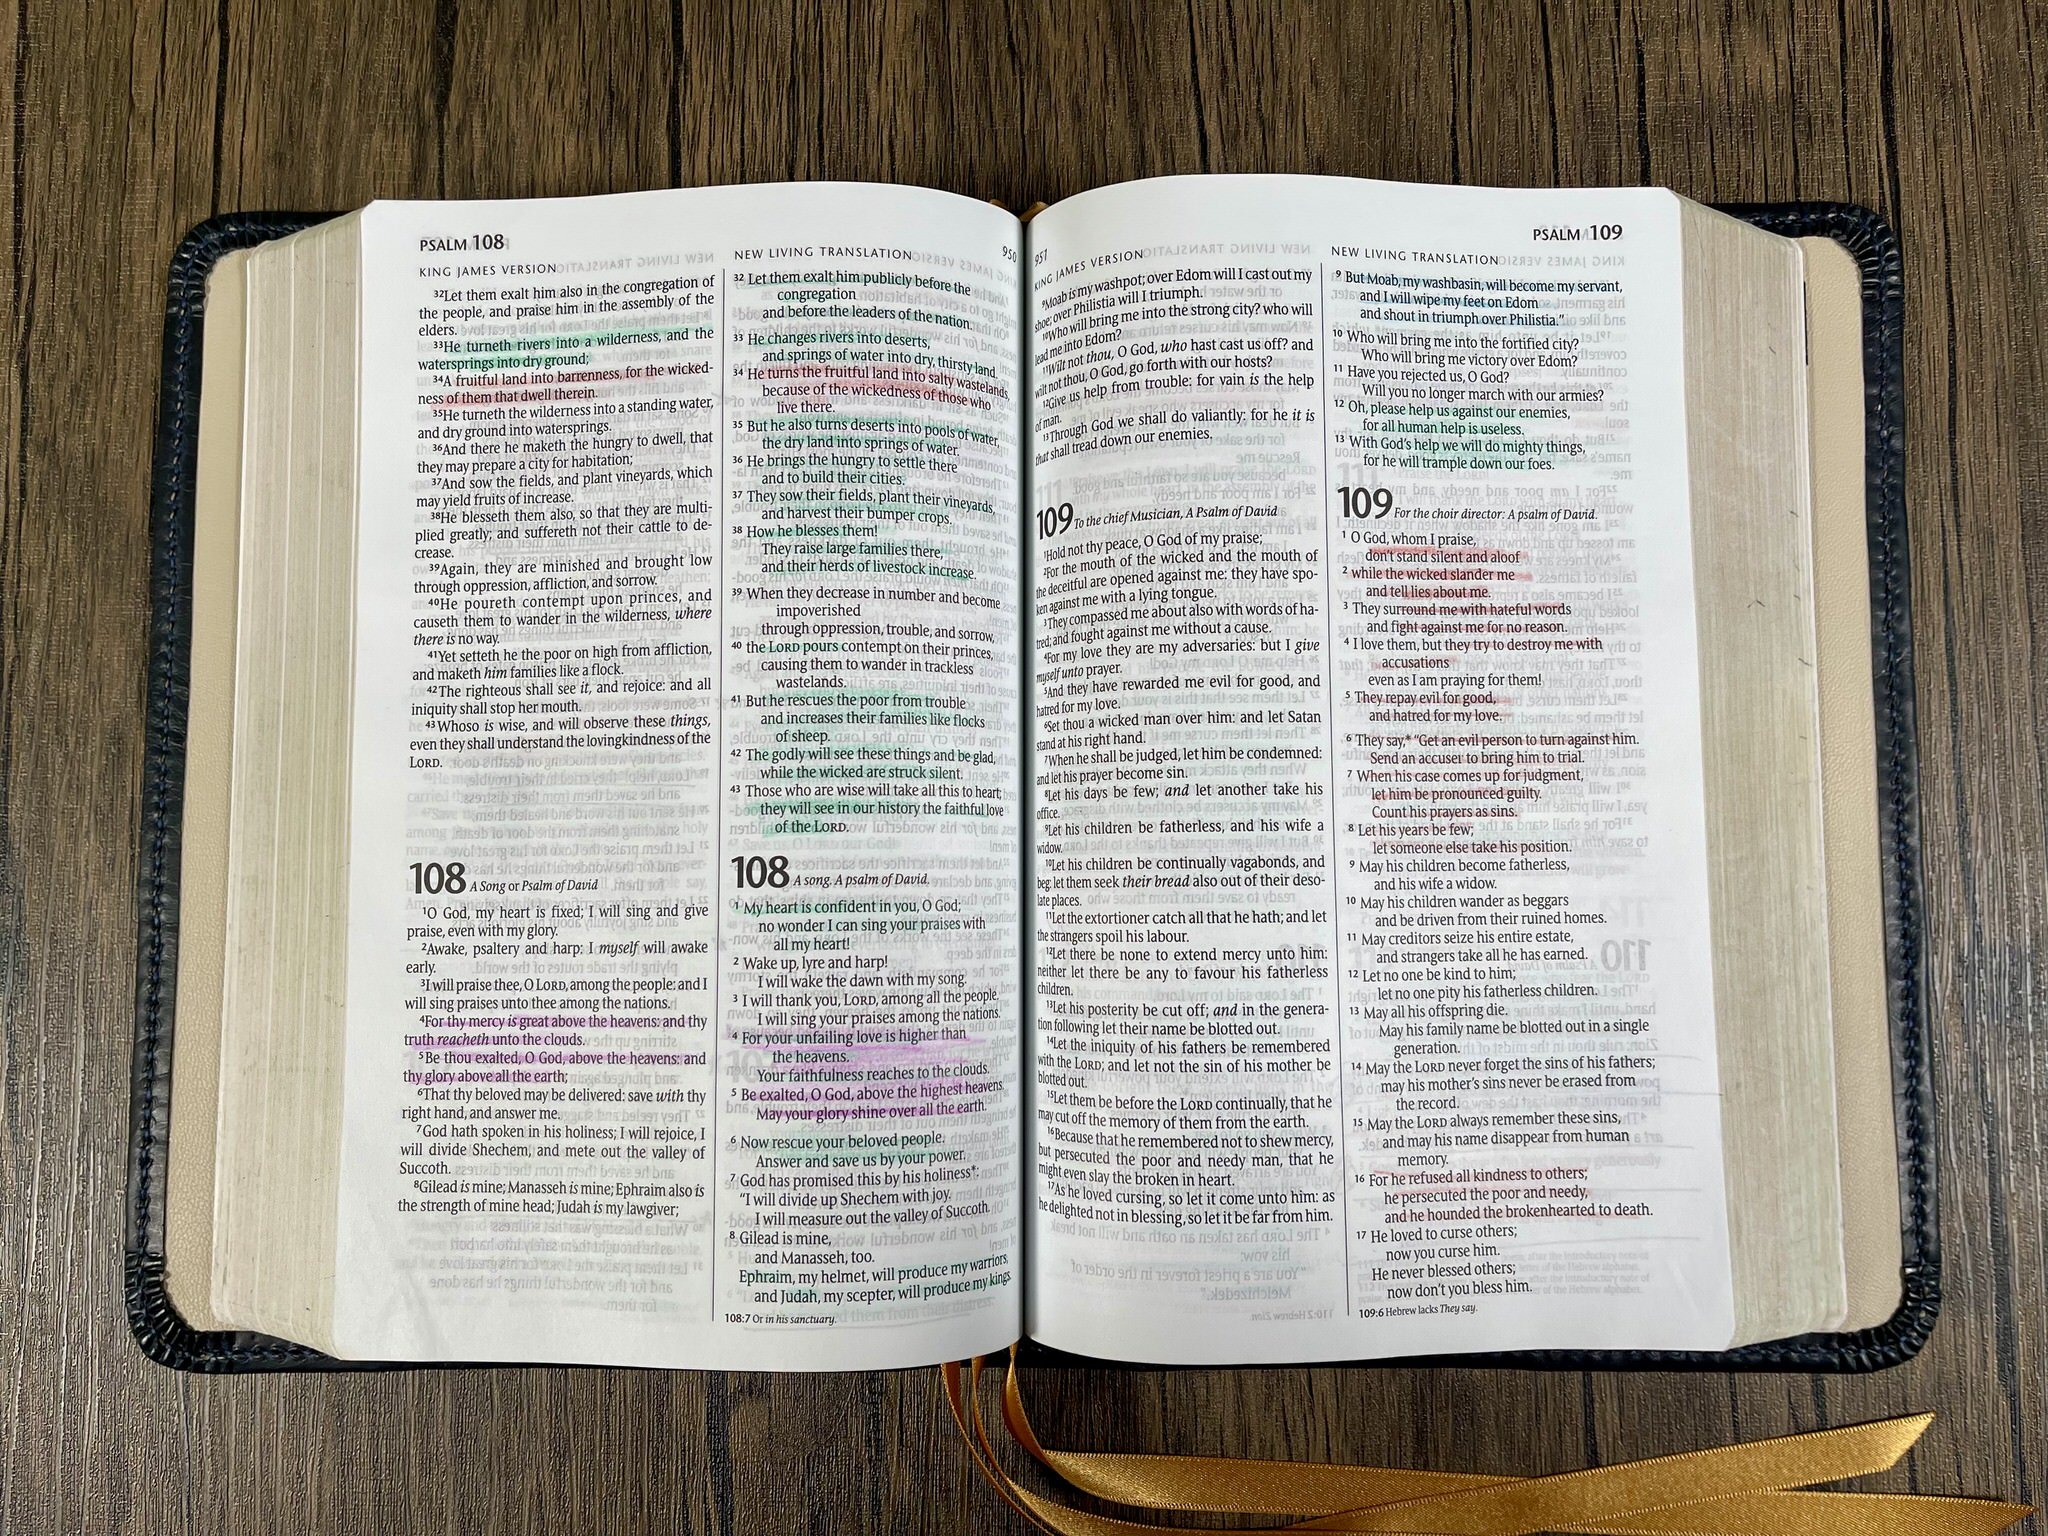 PSALM 108
KING JAMES VERSION
³²Let them exalt him also in the congregation of
the people, and praise him in the assembly of the
elders.
³³He turneth rivers into a wilderness, and the
watersprings into dry ground;
³⁴A fruitful land into barrenness, for the wicked-
ness of them that dwell therein.
³⁵He turneth the wilderness into a standing water,
and dry ground into watersprings.
³⁶And there he maketh the hungry to dwell, that
they may prepare a city for habitation;
³⁷And sow the fields, and plant vineyards, which
may yield fruits of increase.
³⁸He blesseth them also, so that they are multi-
plied greatly; and suffereth not their cattle to de-
crease.
³⁹Again, they are minished and brought low
through oppression, affliction, and sorrow.
⁴⁰He poureth contempt upon princes, and
causeth them to wander in the wilderness, where
there is no way.
⁴¹Yet setteth he the poor on high from affliction,
and maketh him families like a flock.
⁴²The righteous shall see it, and rejoice: and all
iniquity shall stop her mouth.
⁴³Whoso is wise, and will observe these things,
even they shall understand the lovingkindness of the
LORD.
108 A Song or Psalm of David
¹O God, my heart is fixed; I will sing and give
praise, even with my glory.
²Awake, psaltery and harp: I myself will awake
early.
³I will praise thee, O LORD, among the people: and I
will sing praises unto thee among the nations.
⁴For thy mercy is great above the heavens: and thy
truth reacheth unto the clouds.
⁵Be thou exalted, O God, above the heavens: and
thy glory above all the earth;
⁶That thy beloved may be delivered: save with thy
right hand, and answer me.
⁷God hath spoken in his holiness; I will rejoice, I
will divide Shechem, and mete out the valley of
Succoth.
⁸Gilead is mine; Manasseh is mine; Ephraim also is
the strength of mine head; Judah is my lawgiver;
NEW LIVING TRANSLATION
950
32 Let them exalt him publicly before the
congregation
and before the leaders of the nation.
33 He changes rivers into deserts,
and springs of water into dry, thirsty land.
34 He turns the fruitful land into salty wastelands,
because of the wickedness of those who
live there.
35 But he also turns deserts into pools of water,
the dry land into springs of water.
36 He brings the hungry to settle there
and to build their cities.
37 They sow their fields, plant their vineyards,
and harvest their bumper crops.
38 How he blesses them!
They raise large families there,
and their herds of livestock increase.
39 When they decrease in number and become
impoverished
through oppression, trouble, and sorrow,
40 the LORD pours contempt on their princes,
causing them to wander in trackless
wastelands.
41 But he rescues the poor from trouble
and increases their families like flocks
of sheep.
42 The godly will see these things and be glad,
while the wicked are struck silent.
43 Those who are wise will take all this to heart;
they will see in our history the faithful love
of the LORD.
108 A song. A psalm of David.
1 My heart is confident in you, O God;
no wonder I can sing your praises with
all my heart!
2 Wake up, lyre and harp!
I will wake the dawn with my song.
3 I will thank you, LORD, among all the people.
I will sing your praises among the nations.
4 For your unfailing love is higher than
the heavens.
Your faithfulness reaches to the clouds.
5 Be exalted, O God, above the highest heavens.
May your glory shine over all the earth.
6 Now rescue your beloved people.
Answer and save us by your power.
7 God has promised this by his holiness*:
"I will divide up Shechem with joy.
I will measure out the valley of Succoth.
8 Gilead is mine,
and Manasseh, too.
Ephraim, my helmet, will produce my warriors,
and Judah, my scepter, will produce my kings.
108:7 Or in his sanctuary.
951
PSALM 109
KING JAMES VERSION
⁹Moab is my washpot; over Edom will I cast out my
shoe; over Philistia will I triumph.
¹⁰Who will bring me into the strong city? who will
lead me into Edom?
¹¹Wilt not thou, O God, who hast cast us off? and
wilt not thou, O God, go forth with our hosts?
¹²Give us help from trouble: for vain is the help
of man.
¹³Through God we shall do valiantly: for he it is
that shall tread down our enemies.
109 To the chief Musician, A Psalm of David
¹Hold not thy peace, O God of my praise;
²For the mouth of the wicked and the mouth of
the deceitful are opened against me: they have spo-
ken against me with a lying tongue.
³They compassed me about also with words of ha-
tred; and fought against me without a cause.
⁴For my love they are my adversaries: but I give
myself unto prayer.
⁵And they have rewarded me evil for good, and
hatred for my love.
⁶Set thou a wicked man over him: and let Satan
stand at his right hand.
⁷When he shall be judged, let him be condemned:
and let his prayer become sin.
⁸Let his days be few; and let another take his
office.
⁹Let his children be fatherless, and his wife a
widow.
¹⁰Let his children be continually vagabonds, and
beg: let them seek their bread also out of their deso-
late places.
¹¹Let the extortioner catch all that he hath; and let
the strangers spoil his labour.
¹²Let there be none to extend mercy unto him:
neither let there be any to favour his fatherless
children.
¹³Let his posterity be cut off; and in the genera-
tion following let their name be blotted out.
¹⁴Let the iniquity of his fathers be remembered
with the LORD; and let not the sin of his mother be
blotted out.
¹⁵Let them be before the LORD continually, that he
may cut off the memory of them from the earth.
¹⁶Because that he remembered not to shew mercy,
but persecuted the poor and needy man, that he
might even slay the broken in heart.
¹⁷As he loved cursing, so let it come unto him: as
he delighted not in blessing, so let it be far from him.
NEW LIVING TRANSLATION
9 But Moab, my washbasin, will become my servant,
and I will wipe my feet on Edom
and shout in triumph over Philistia."
10 Who will bring me into the fortified city?
Who will bring me victory over Edom?
11 Have you rejected us, O God?
Will you no longer march with our armies?
12 Oh, please help us against our enemies,
for all human help is useless.
13 With God's help we will do mighty things,
for he will trample down our foes.
109 For the choir director: A psalm of David.
1 O God, whom I praise,
don't stand silent and aloof
2 while the wicked slander me
and tell lies about me.
3 They surround me with hateful words
and fight against me for no reason.
4 I love them, but they try to destroy me with
accusations
even as I am praying for them!
5 They repay evil for good,
and hatred for my love.
6 They say,* "Get an evil person to turn against him.
Send an accuser to bring him to trial.
7 When his case comes up for judgment,
let him be pronounced guilty.
Count his prayers as sins.
8 Let his years be few;
let someone else take his position.
9 May his children become fatherless,
and his wife a widow.
10 May his children wander as beggars
and be driven from their ruined homes.
11 May creditors seize his entire estate,
and strangers take all he has earned.
12 Let no one be kind to him;
let no one pity his fatherless children.
13 May all his offspring die.
May his family name be blotted out in a single
generation.
14 May the LORD never forget the sins of his fathers;
may his mother's sins never be erased from
the record.
15 May the LORD always remember these sins,
and may his name disappear from human
memory.
16 For he refused all kindness to others;
he persecuted the poor and needy,
and he hounded the brokenhearted to death.
17 He loved to curse others;
now you curse him.
He never blessed others;
now don't you bless him.
109:6 Hebrew lacks They say.